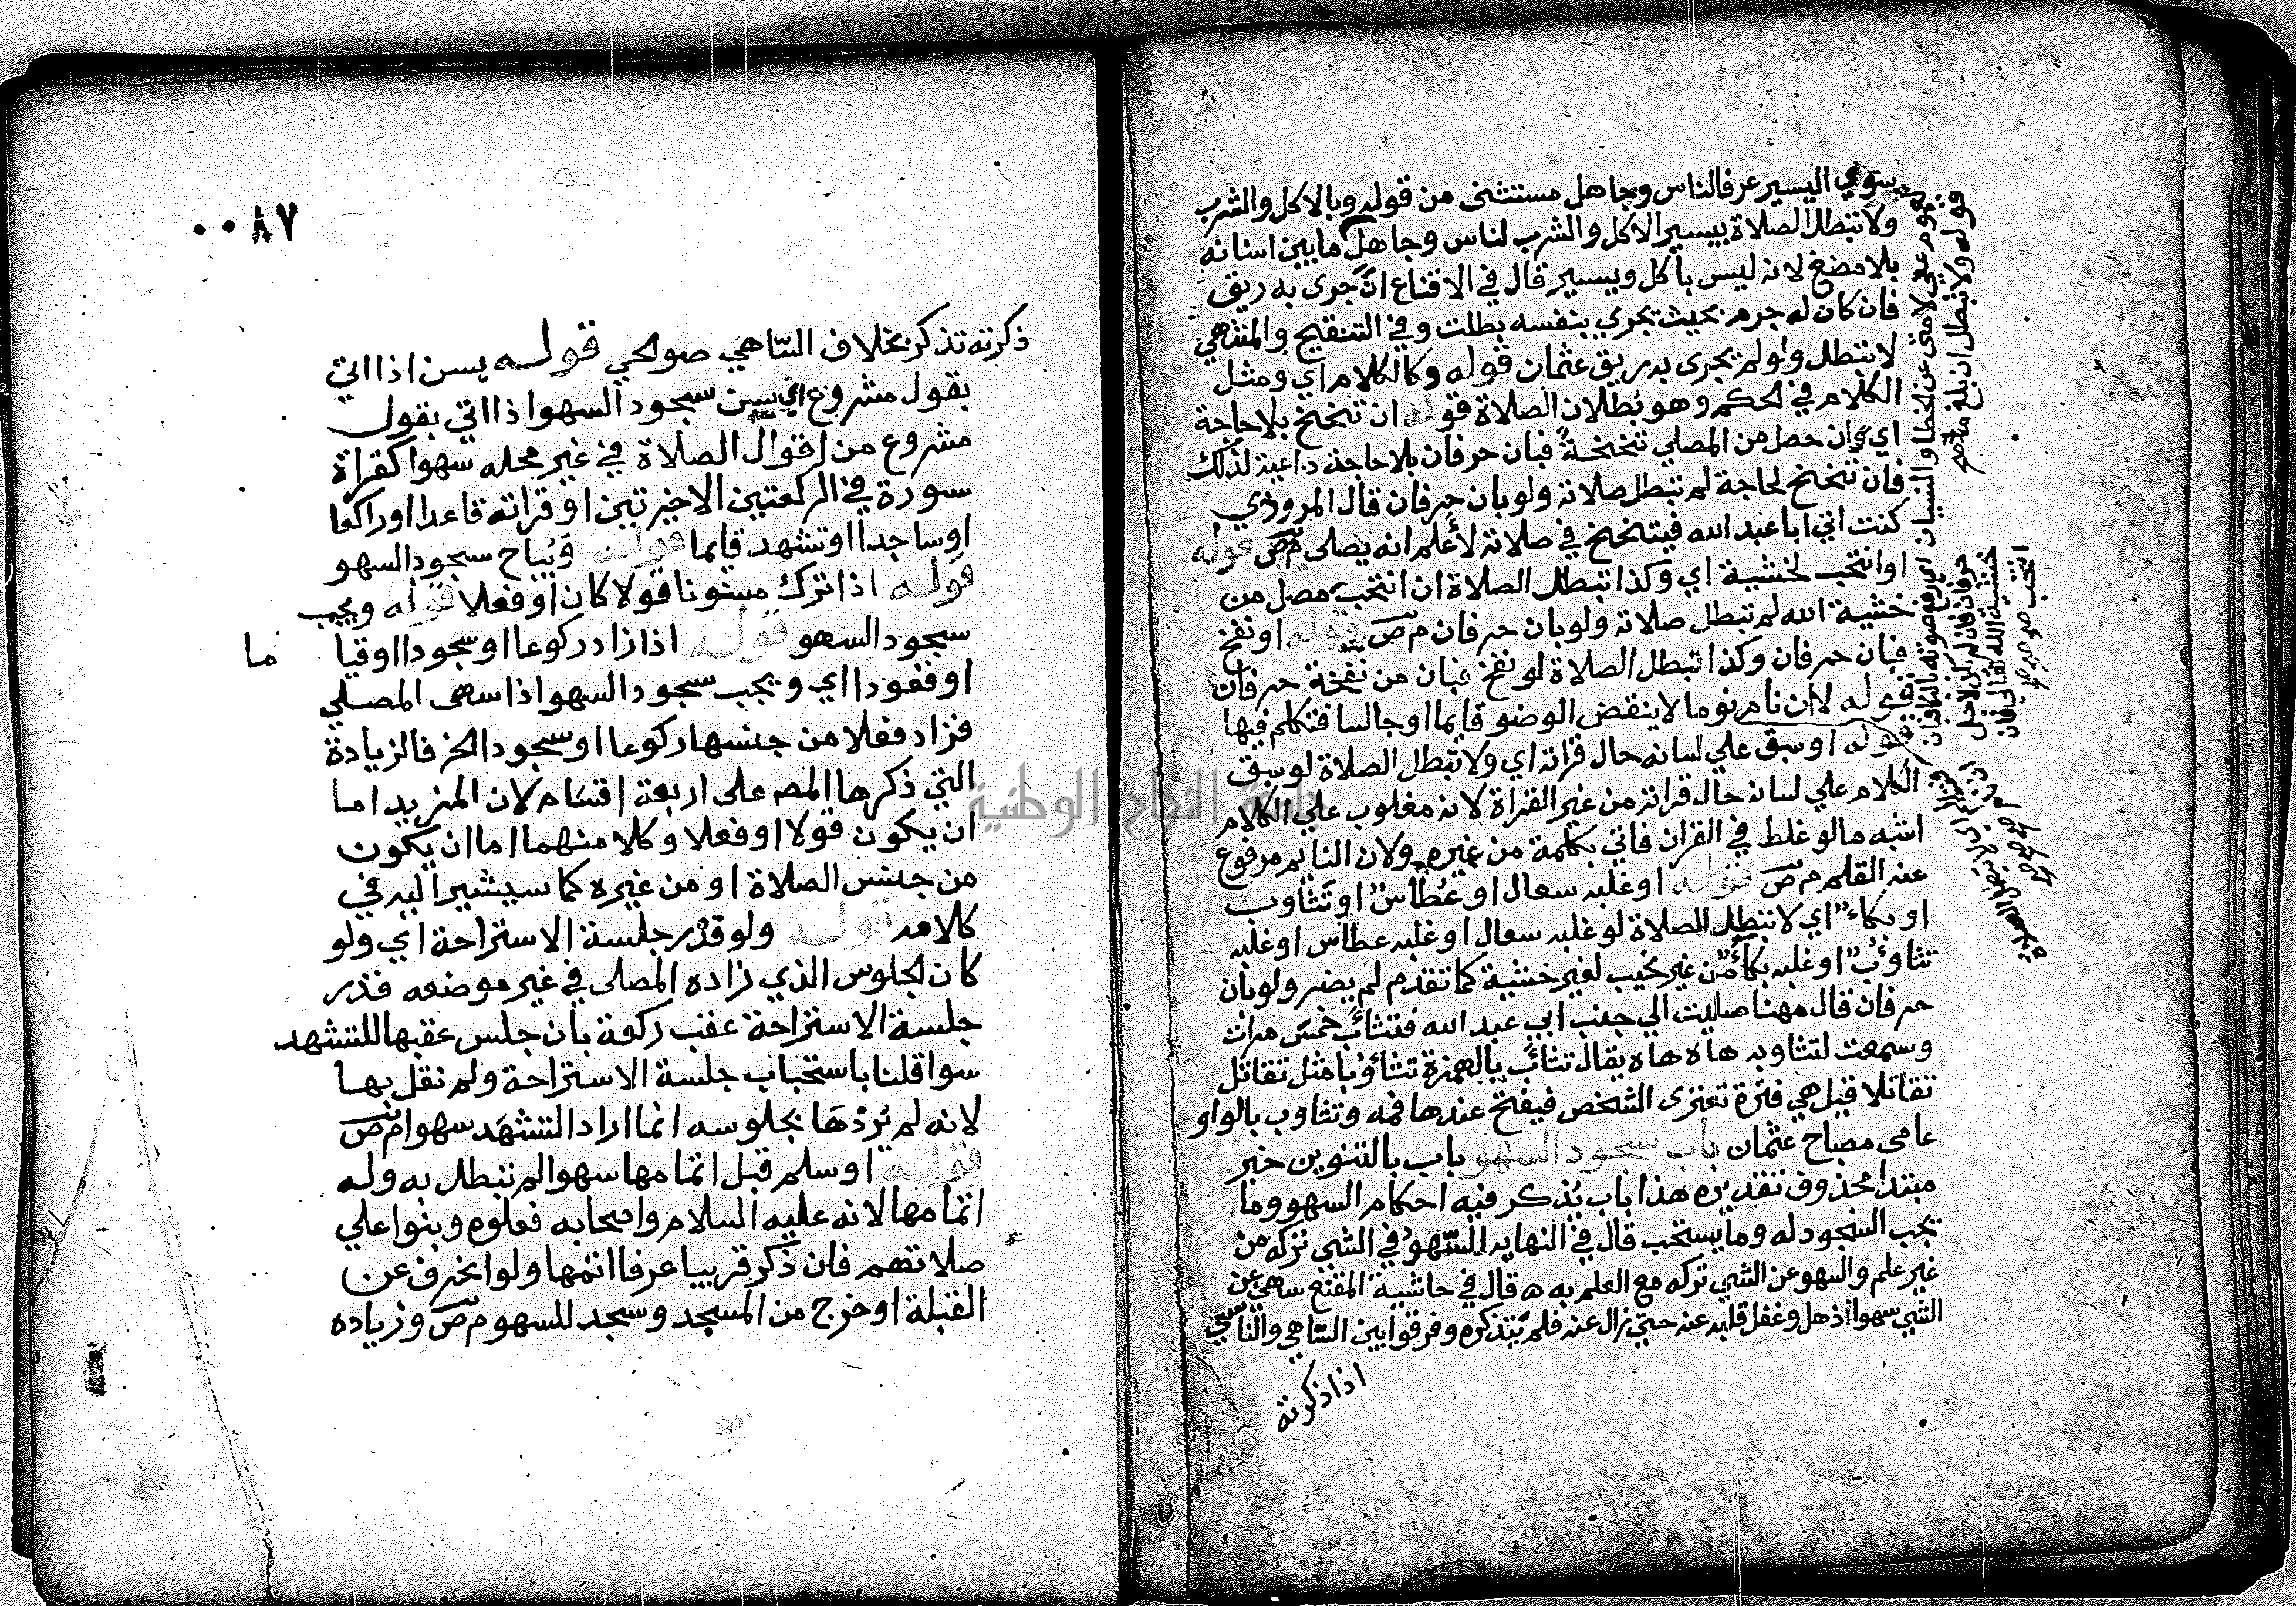 سوي اليسير عرفا لناس وجاهل مستثنى من قوله وبالاكل والشرب
ولا تبطل الصلاة بيسير الاكل والشرب لناس وجاهل ما بين اسنانه
بلا مضغ لانه ليس باكل ويسير قال في الاقناع ان جرى به ريق
فان كان له جرم بحيث يجري بنفسه بطلت وفي التنقيح والمنتهى
لا تبطل ولو لم يجرى به ريق عثمان قوله وكالكلام اي ومثل
الكلام في الحكم وهو بطلان الصلاة قوله ان تنحنح بلا حاجة
اي وان حصل من المصلي تنحنحة فبان حرفان بلا حاجة داعية لذلك
فان تنحنح لحاجة لم تبطل صلاته ولو بان حرفان قال المروذي
كنت اتي ابا عبد الله فيتنحنح في صلاته لأعلم انه يصلى م ص قوله
او انتحب لخشية اي وكذا تبطل الصلاة ان انتحب مصل من
خشية الله لم تبطل صلاته ولو بان حرفان م ص قوله او نفخ
فبان حرفان وكذا تبطل الصلاة لو نفخ فبان من نفخة حرفان
قوله لا ان نام نوما لا ينقض الوضو قايما او جالسا فتكلم فيها
قوله او سبق علي لسانه حال قراته اي ولا تبطل الصلاة لو سبق
الكلام علي لسانه حال قراته من غير القراة لانه مغلوب علي الكلام
اشبه ما لو غلط في القران فاتي بكلمة من غيره ولان النايم مرفوع
عنه القلم م ص قوله او غلبه سعال او عُطاسٌ او تثاوب
او بكاء اي لا تبطل الصلاة لو غلبه سعال او غلبه عطاس او غلبه
تثاوبٌ او غلبه بكاء من غير نحيب لغير خشية كما تقدم لم يضر ولو بان
حرفان قال مهنا صليت الي جنب ابي عبد الله فتثائب خمس مرات
وسمعت لتثاوبه هاه هاه يقال تثائب بالهمزة تثاؤبا مثل تقاتل
تقاتلا قيل هي فترة تعترى الشخص فيفتح عندها فمه وتثاوب بالواو
عامى مصباح عثمان باب سجود السهو باب بالتنوين خبر
مبتدا محذوف تقديره هذا باب يُذكر فيه احكام السهو وما
يجب السجود له وما يستحب قال في النهاية السّهوُ في الشي تركه من
غير علم والسهو عن الشي تركه مع العلم به ه قال في حاشية المقنع سهى عن
الشي سهوا اذهل وغفل قلبه عنه حتى زال عنه فلم يتذكره وفرقوا بين السّاهي والناسي
اذا ذكرته
قوله ولا تبطل ان بلع
٠٠٨٧
ذكرته تذكر بخلاف السّاهي صوالحي قوله يسن اذا اتي
بقول مشروع اي يسن سجود السهو اذا اتي بقول
مشروع من اقوال الصلاة في غير محله سهوا كقراة
سورة في الركعتين الاخيرتين او قراته قاعدا او راكعا
او ساجدا او تشهد قايما قوله وَيُباح سجود السهو
قوله اذا ترك مسنونا قولا كان او فعلا قوله ويجب
سجود السهو قوله اذا زاد ركوعا او سجودا او قيا ما
او قعودا اي ويجب سجود السهو اذا سهى المصلي
فزاد فعلا من جنسها ركوعا او سجودا الخ فالزيادة
التي ذكرها المصـ على اربعة اقسام لان المزيد اما
ان يكون قولا او فعلا وكلا منهما اما ان يكون
من جنس الصلاة او من غيره كما سيشير اليه في
كلامه قوله ولو قدْر جلسة الاستراحة اي ولو
كان الجلوس الذي زاده المصلى في غير موضعه قدر
جلسة الاستراحة عقب ركعة بان جلس عقبها للتشهد
سوا قلنا باستحباب جلسة الاستراحة ولم نقل بها
لانه لم يُردْهَا بجلوسه انما اراد التشهد سهوا م ص
قوله او سلم قبل اتمامها سهوا لم تبطل به وله
اتمامها لانه عليه السلام واصحابه فعلوه وبنوا علي
صلاتهم فان ذكر قريبا عرفا اتمها ولو انحرف عن
القبلة او خرج من المسجد وسجد للسهو م ص وزياده